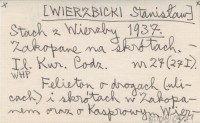 [WIERZBICKI Stanisław]
Stach z Wierchy 1937.
Zakopane na skrótach.
Il. Kur. Codz. nr 27 (27 I)
WHP
Felieton o drogach (uli-
cach) i skrótach w Zakopa-
nem oraz o Kasprowym Wier-